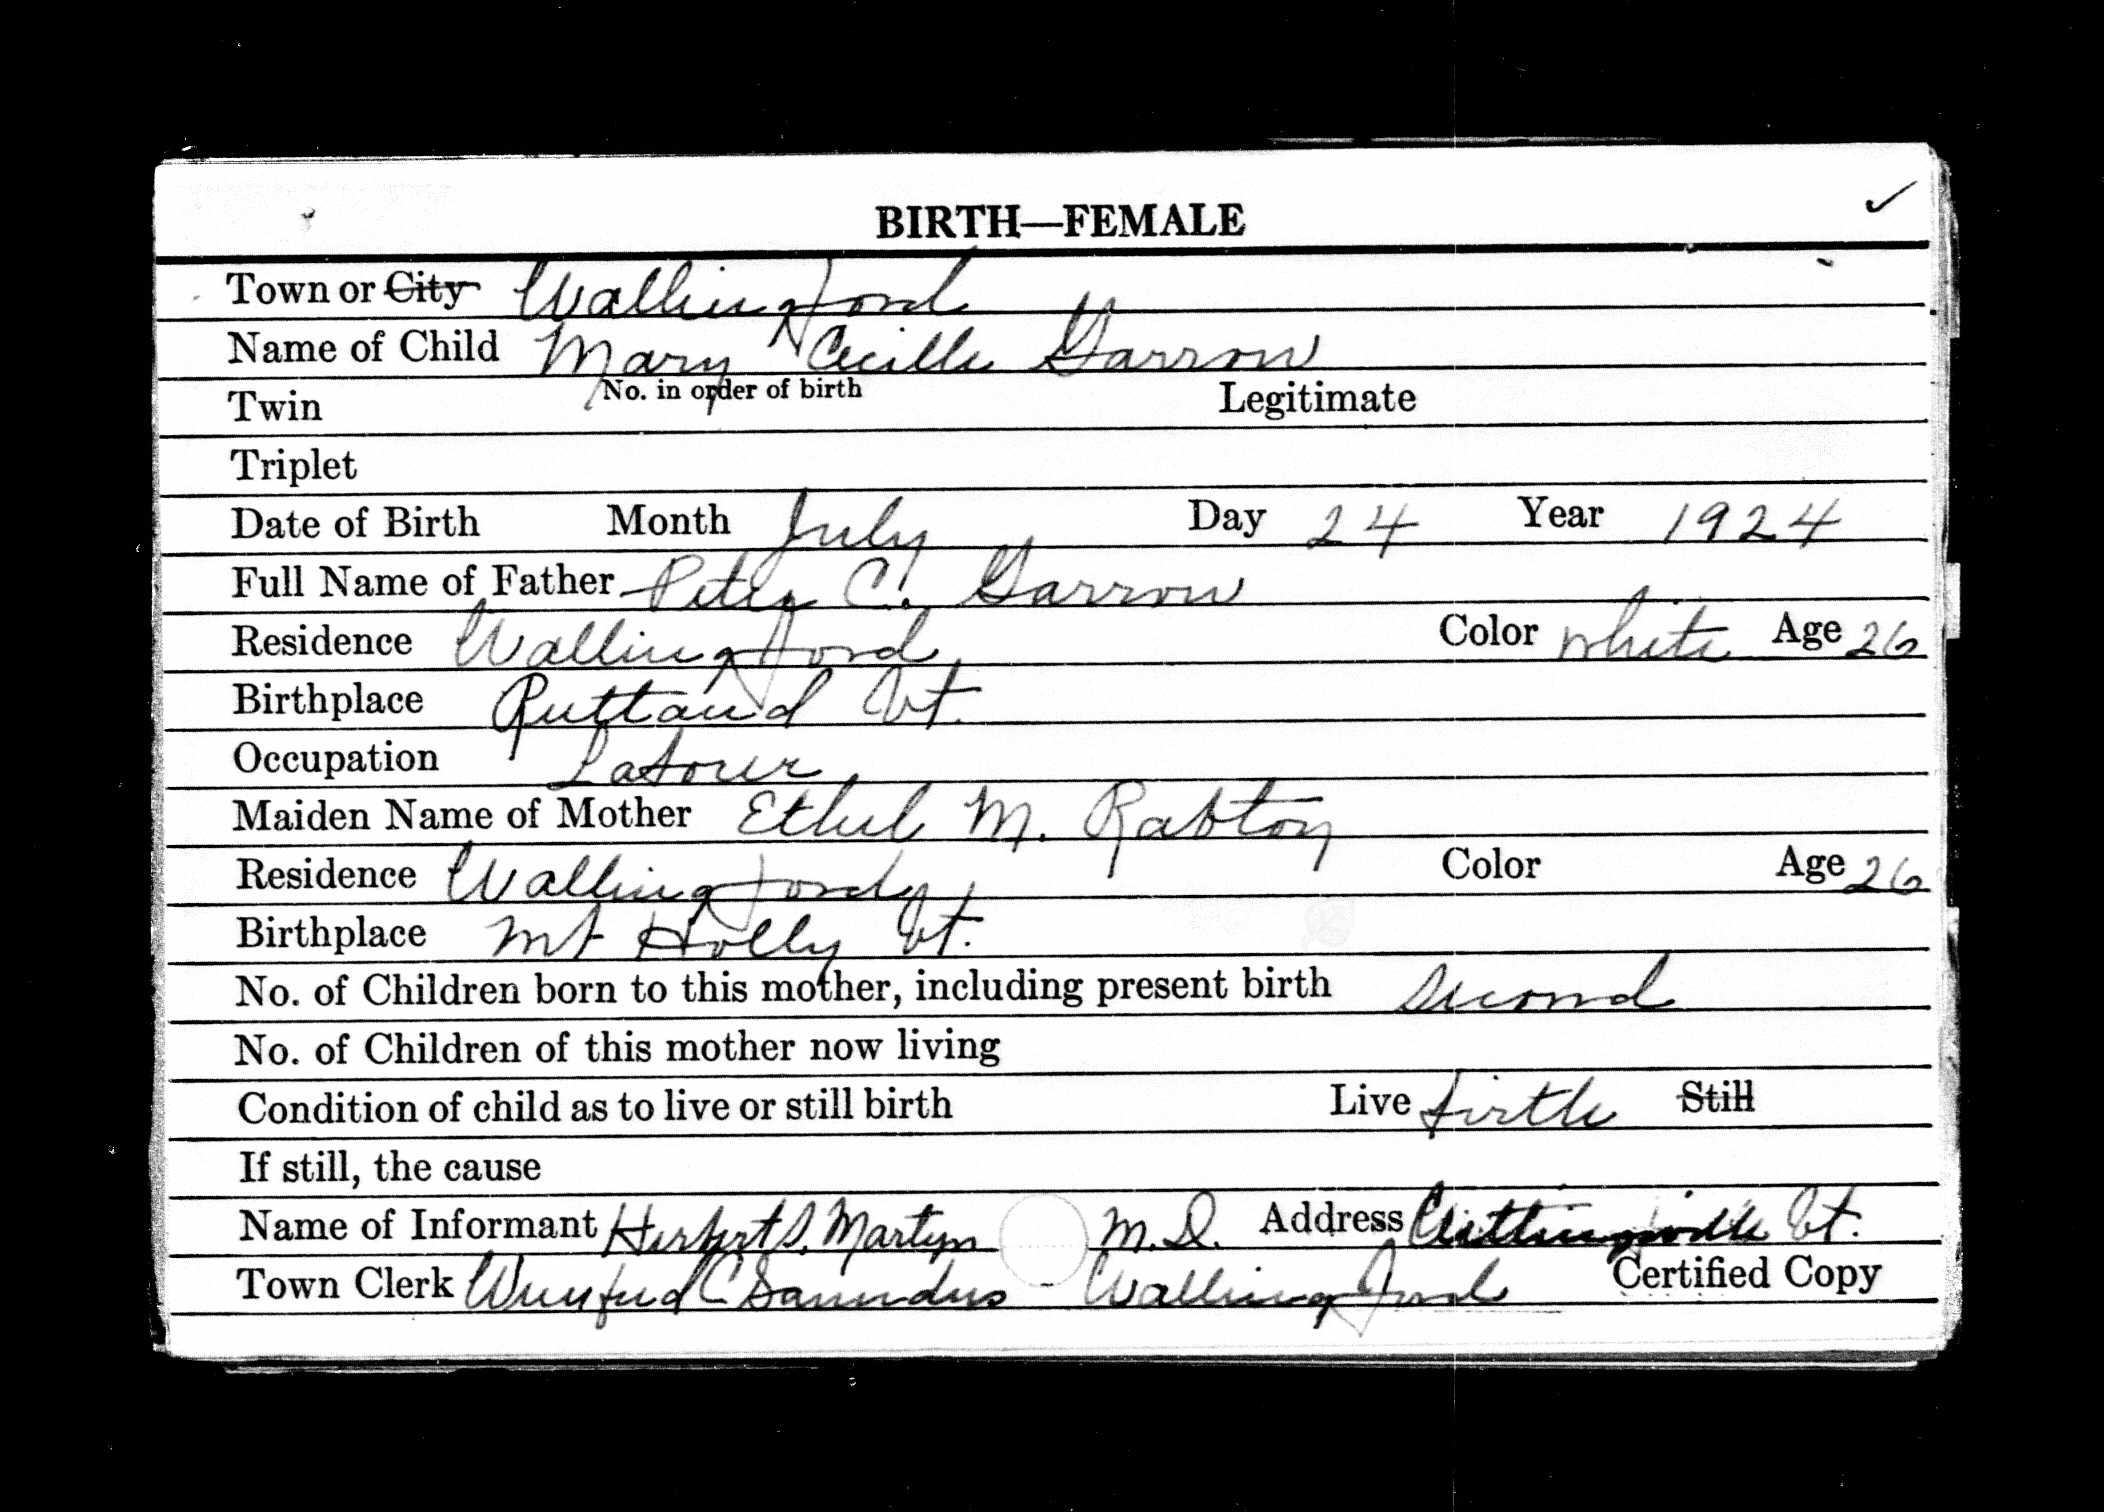 BIRTH—FEMALE ✓
Town or City Wallingford
Name of Child Mary Cecille Garrow
Twin No. in order of birth Legitimate
Triplet
Date of Birth Month July Day 24 Year 1924
Full Name of Father Peter C. Garrow
Residence Wallingford Color White Age 26
Birthplace Rutland Vt.
Occupation Labourer
Maiden Name of Mother Ethel M. Rabtoy
Residence Wallingford Color Age 26
Birthplace Mt Holly Vt.
No. of Children born to this mother, including present birth Second
No. of Children of this mother now living
Condition of child as to live or still birth Live birth Still
If still, the cause
Name of Informant Herbert S. Martyn M.D. Address Cuttingsville Vt.
Town Clerk C Saunders Wallingford Certified Copy